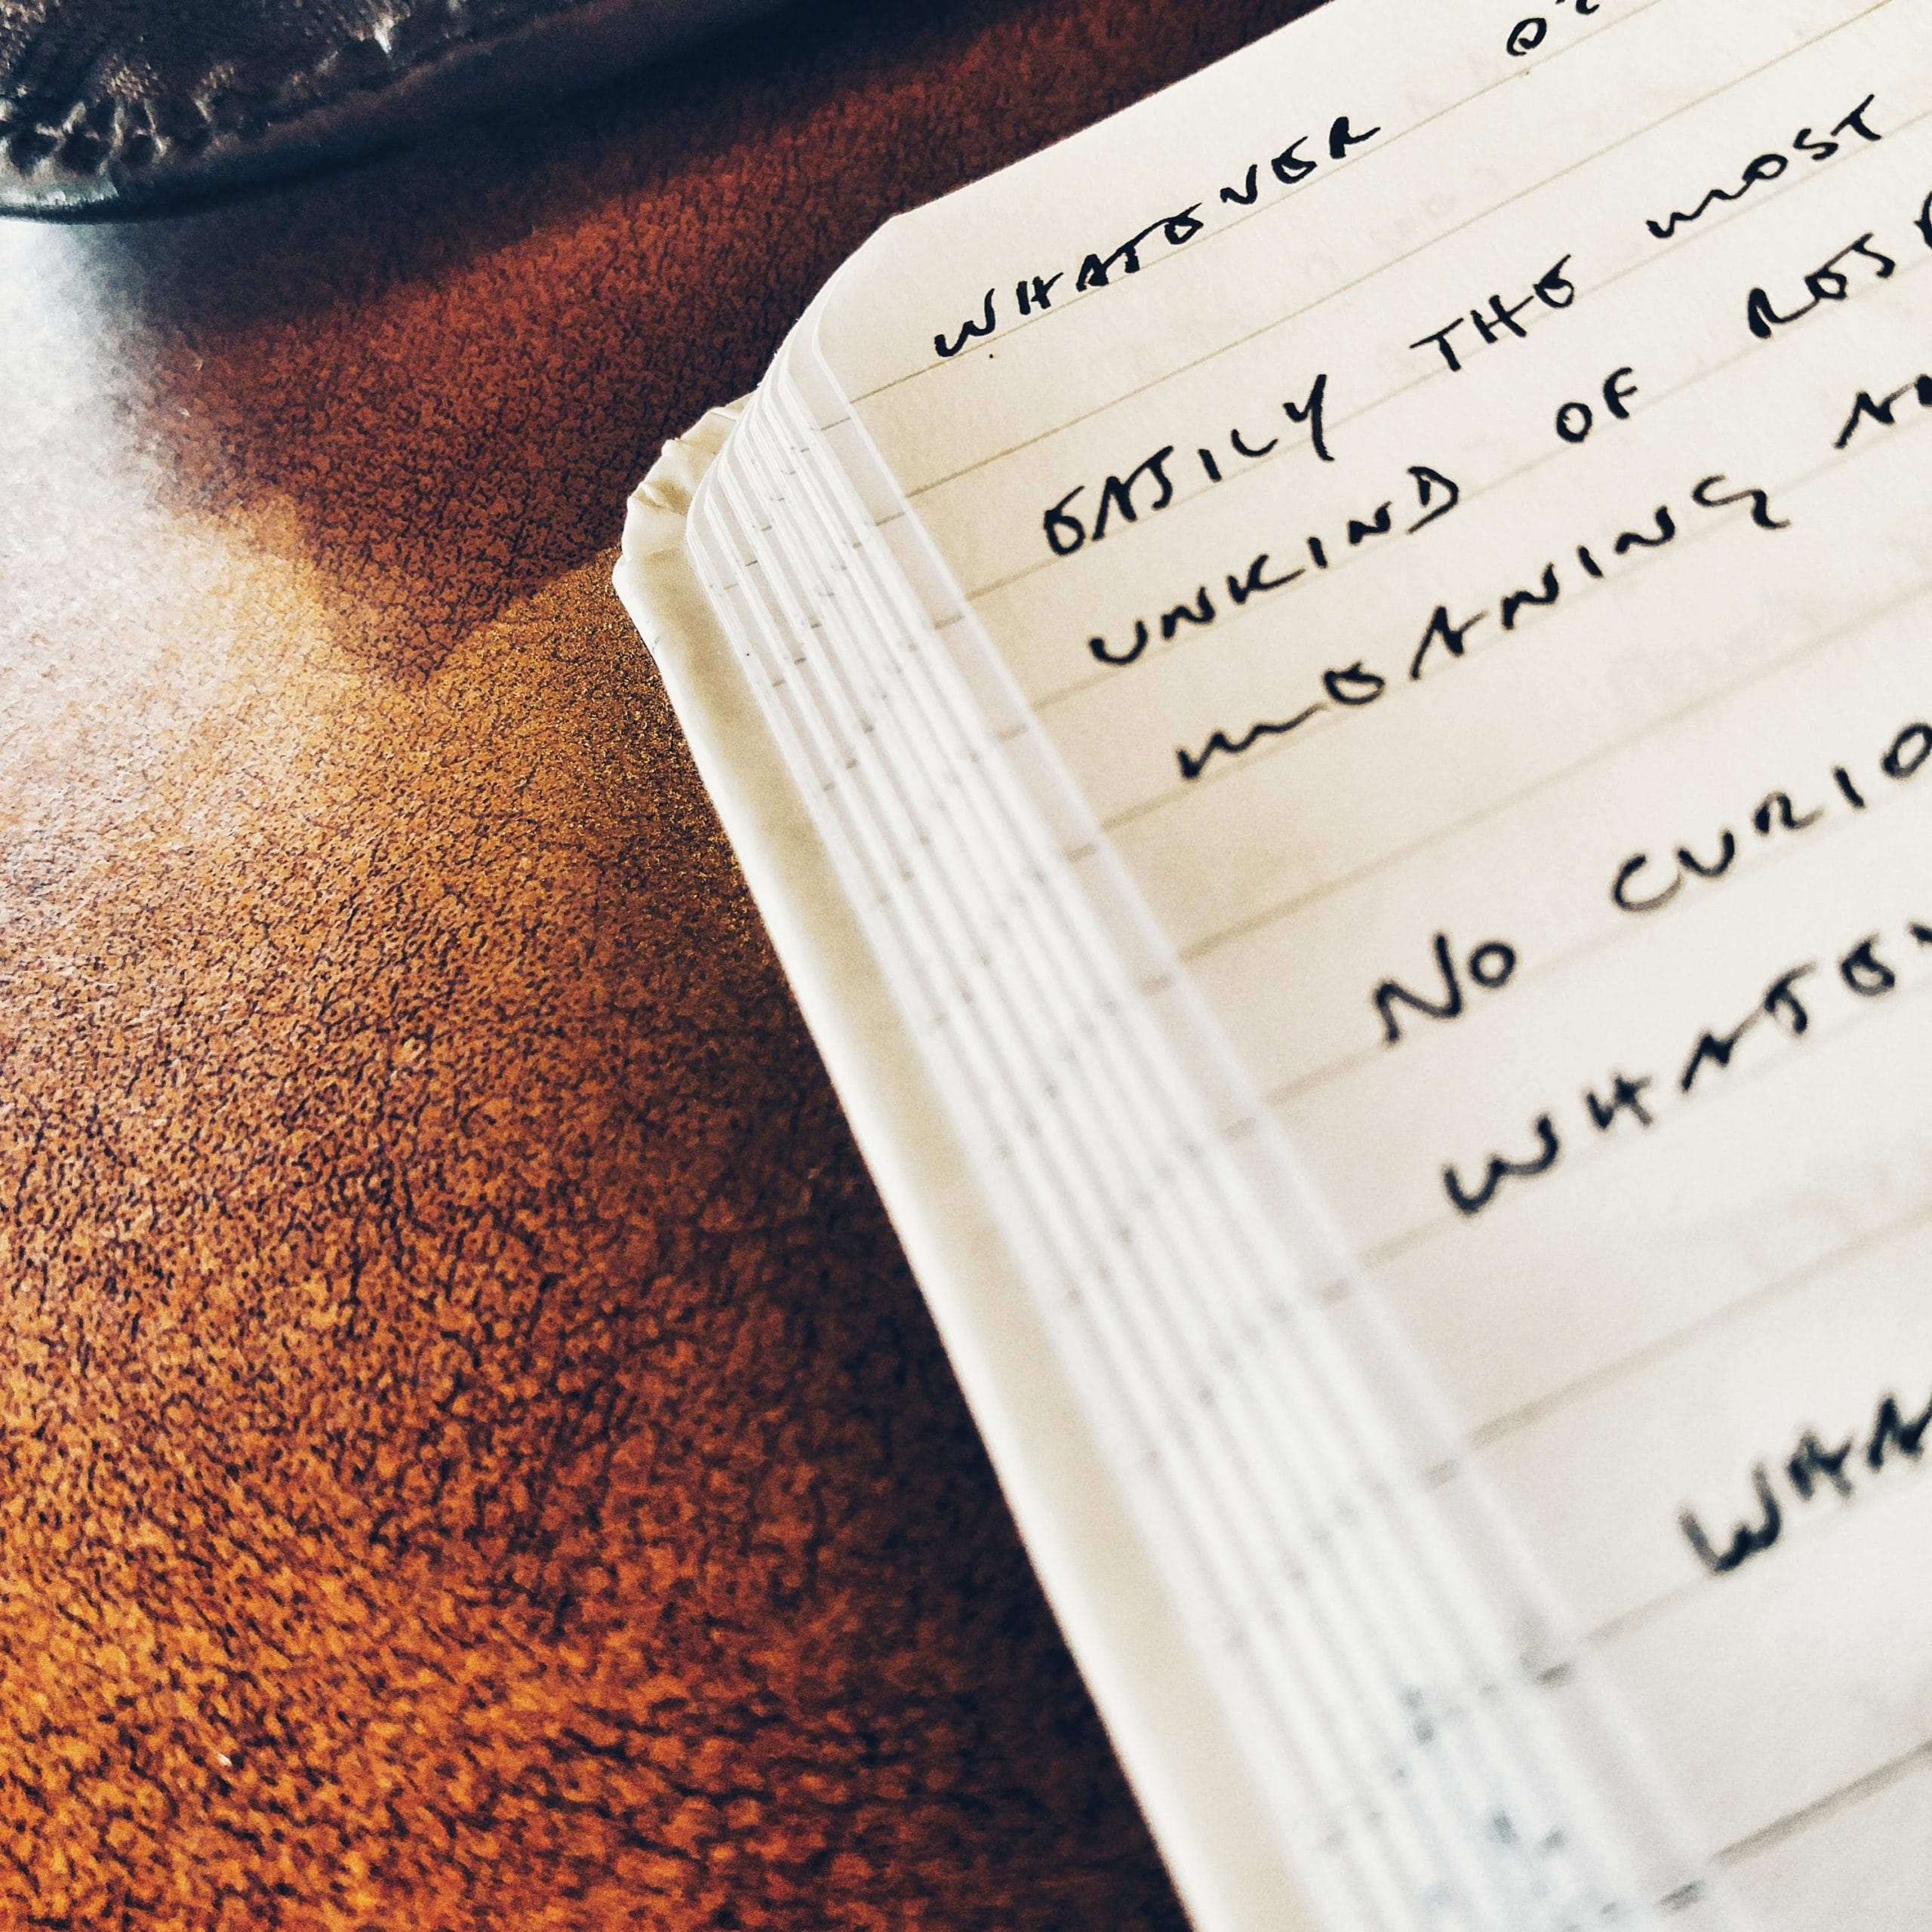 WHATEVER
EASILY THE MOST
UNKIND OF
MEANING
NO CURIO
WHATEV
WHA